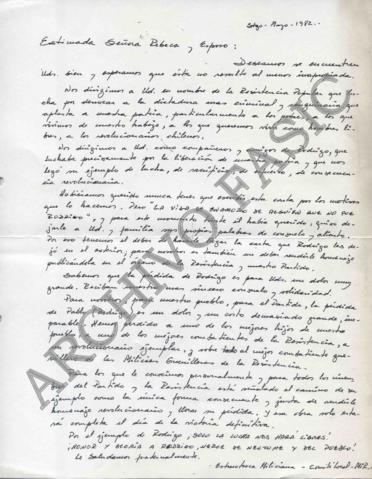 Stgo - Mayo - 1982.
Estimada Señora Rebeca y Esposo:
Deseamos se encuentren
Uds. bien y esperamos que ésta no resulte al menos inoportuna.
Nos dirigimos a Ud. en nombre de la Resistencia Popular que lu-
cha por derrocar a la dictadura más criminal y que
aplasta a nuestra patria, particularmente a los pobres, a los que
vivimos de nuestro trabajo, a los que queremos vivir como hombres li-
bres, a los revolucionarios chilenos.
Nos dirigimos a Ud. como compañeros y amigos de Rodrigo, que
luchaba precisamente por la liberación de y que nos
legó su ejemplo de lucha, de sacrificio, de de consecuencia
revolucionaria.
Hubiéramos querido nunca tener que escribir esta carta por los motivos
que lo hacemos. Pero "LA VIDA
y para este momento tanto él había querido, quiso de-
jarle a Ud. y familia sus propias palabras de consuelo y aliento.
Por eso tenemos el deber de la carta que Rodrigo les
dejó en el exterior, pero también un deber rendirle homenaje
publicándola en el de la Resistencia y nuestro Partido.
Sabemos que la pérdida de Rodrigo es para Uds. un dolor muy
grande. Reciban nuestro más sincero consuelo y solidaridad.
Para nosotros, para nuestro pueblo, para el Partido, la pérdida
de es un dolor y un costo demasiado grande, irre-
parable. Hemos perdido a uno de los mejores hijos de nuestro
pueblo, a uno de los mejores combatientes de la Resistencia, a
un revolucionario ejemplar, y sobre todo al mejor combatiente gue-
rrillero de las Milicias Guerrilleras de la Resistencia.
Para los que lo conocimos personalmente y para todos los miem-
bros del Partido y la Resistencia está señalado el camino de su
ejemplo como la única forma consecuente y justa de rendirle
homenaje revolucionario, llorar su pérdida, y esa obra solo esta-
rá completa el día de la victoria definitiva.
Por el ejemplo de Rodrigo, ¡SOLO LA LUCHA NOS HARÁ LIBRES!
¡HONOR Y GLORIA A RODRIGO, HEROE DE NELTUME Y DEL PUEBLO!
Le saludamos fraternalmente.
Estructura Miliciana - MIR.
ARCHIVO FASIC